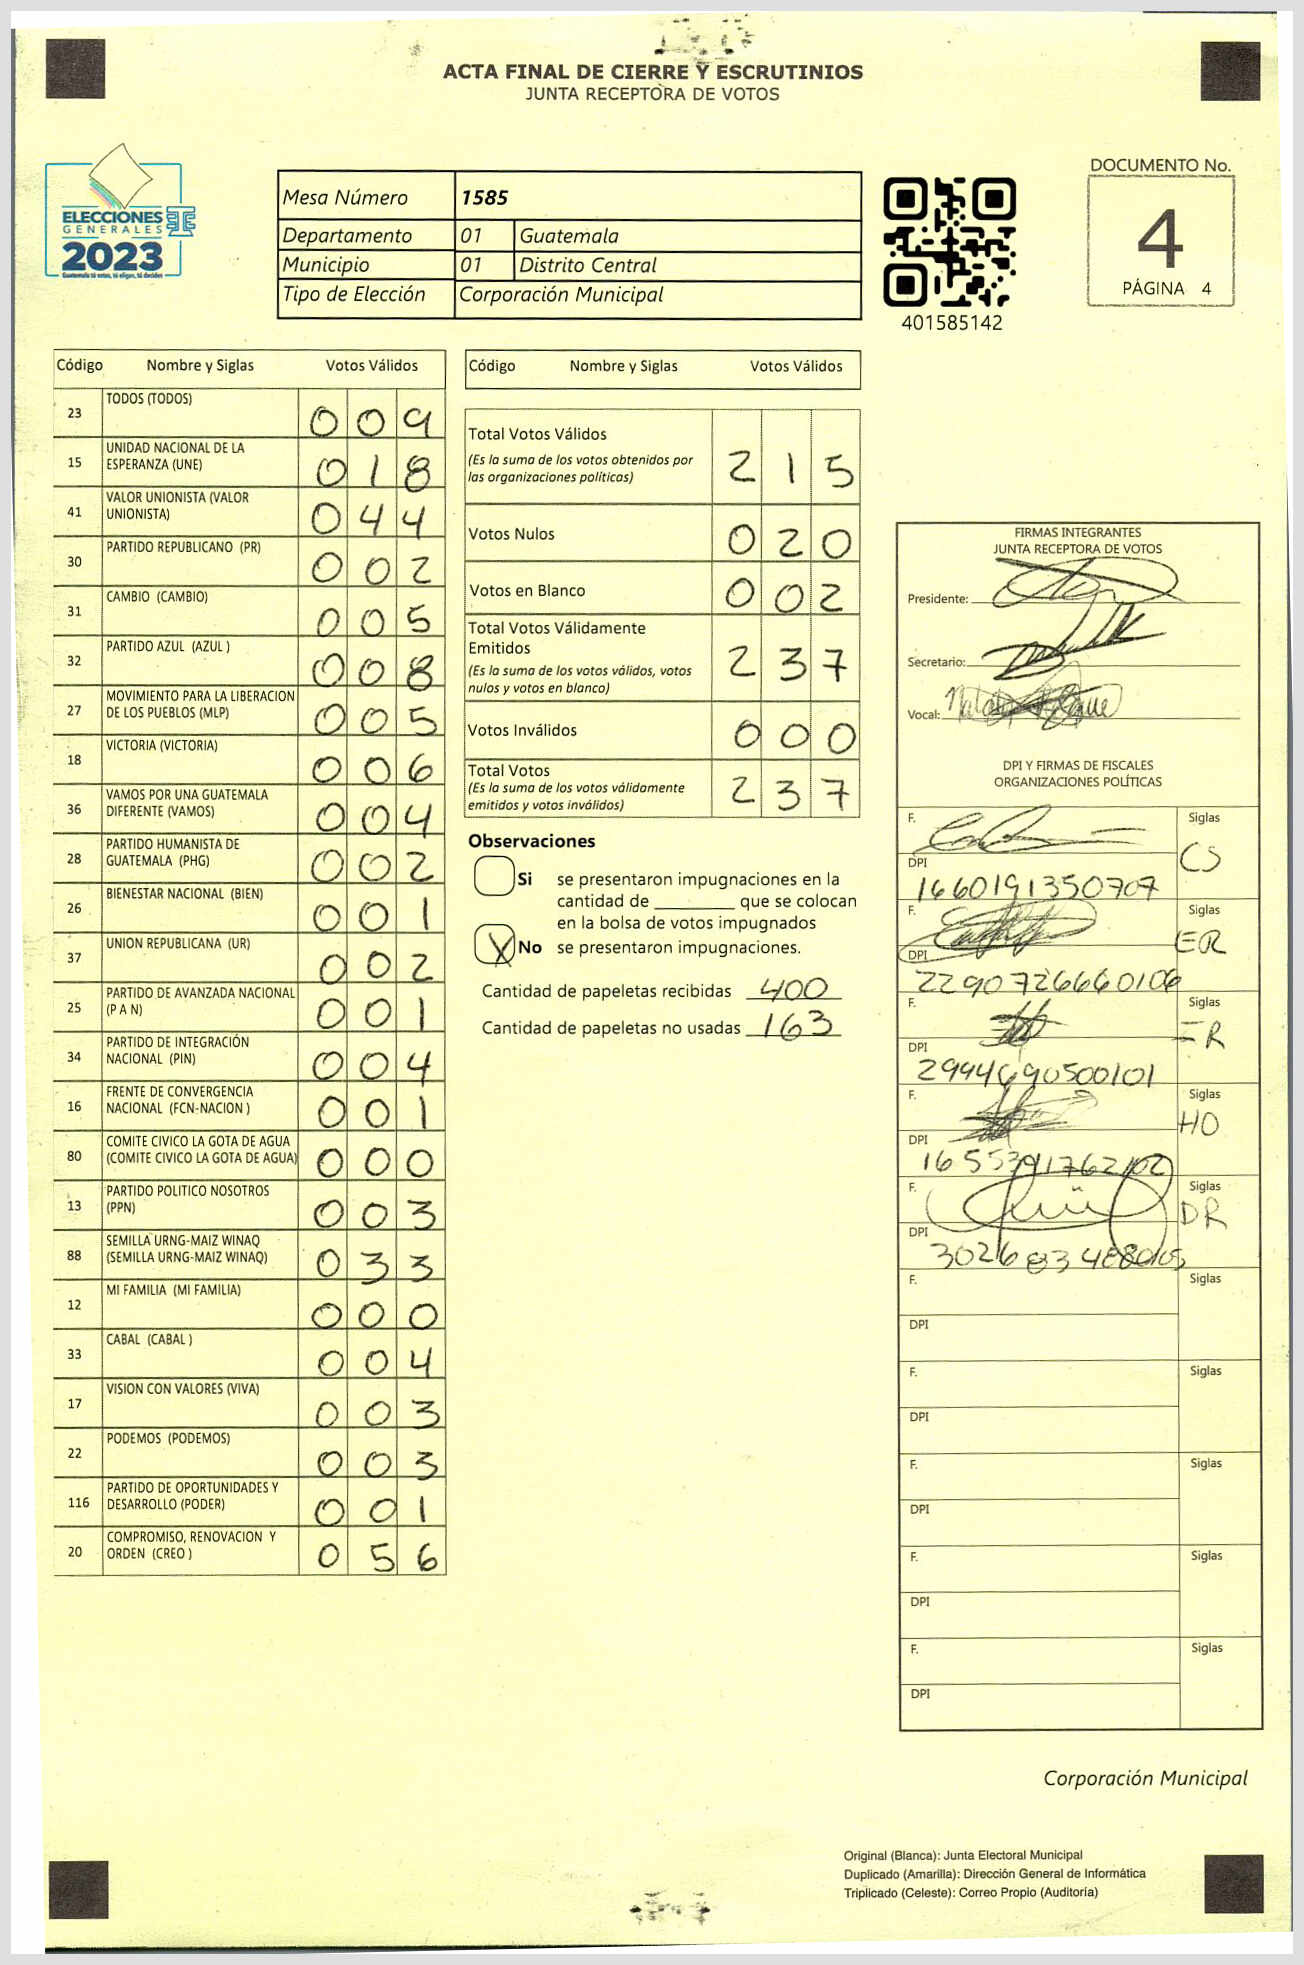 ACTA FINAL DE CIERRE Y ESCRUTINIOS
JUNTA RECEPTORA DE VOTOS
ELECCIONES
GENERALES
2023
Guatemala tú votas, tú eliges, tú decides
Mesa Número 1585
Departamento 01 Guatemala
Municipio 01 Distrito Central
Tipo de Elección Corporación Municipal
401585142
DOCUMENTO No.
4
PÁGINA 4
Código Nombre y Siglas Votos Válidos
23 TODOS (TODOS) 009
15 UNIDAD NACIONAL DE LA
ESPERANZA (UNE) 018
41 VALOR UNIONISTA (VALOR
UNIONISTA) 044
30 PARTIDO REPUBLICANO (PR) 002
31 CAMBIO (CAMBIO) 005
32 PARTIDO AZUL (AZUL ) 008
27 MOVIMIENTO PARA LA LIBERACION
DE LOS PUEBLOS (MLP) 005
18 VICTORIA (VICTORIA) 006
36 VAMOS POR UNA GUATEMALA
DIFERENTE (VAMOS) 004
28 PARTIDO HUMANISTA DE
GUATEMALA (PHG) 002
26 BIENESTAR NACIONAL (BIEN) 001
37 UNION REPUBLICANA (UR) 002
25 PARTIDO DE AVANZADA NACIONAL
(P A N) 001
34 PARTIDO DE INTEGRACIÓN
NACIONAL (PIN) 004
16 FRENTE DE CONVERGENCIA
NACIONAL (FCN-NACION ) 001
80 COMITE CIVICO LA GOTA DE AGUA
(COMITE CIVICO LA GOTA DE AGUA) 000
13 PARTIDO POLITICO NOSOTROS
(PPN) 003
88 SEMILLA URNG-MAIZ WINAQ
(SEMILLA URNG-MAIZ WINAQ) 033
12 MI FAMILIA (MI FAMILIA) 000
33 CABAL (CABAL ) 004
17 VISION CON VALORES (VIVA) 003
22 PODEMOS (PODEMOS) 003
116 PARTIDO DE OPORTUNIDADES Y
DESARROLLO (PODER) 001
20 COMPROMISO, RENOVACION Y
ORDEN (CREO ) 056
Código Nombre y Siglas Votos Válidos
Total Votos Válidos
(Es la suma de los votos obtenidos por
las organizaciones políticas) 215
Votos Nulos 020
Votos en Blanco 002
Total Votos Válidamente
Emitidos
(Es la suma de los votos válidos, votos
nulos y votos en blanco) 237
Votos Inválidos 000
Total Votos
(Es la suma de los votos válidamente
emitidos y votos inválidos) 237
Observaciones
Si se presentaron impugnaciones en la
cantidad de ________ que se colocan
en la bolsa de votos impugnados
X No se presentaron impugnaciones.
Cantidad de papeletas recibidas 400
Cantidad de papeletas no usadas 163
FIRMAS INTEGRANTES
JUNTA RECEPTORA DE VOTOS
Presidente:
Secretario:
Vocal:
DPI Y FIRMAS DE FISCALES
ORGANIZACIONES POLÍTICAS
F. Siglas CS
DPI 1660191350707
F. Siglas ER
DPI 2290726660106
F. Siglas ER
DPI 2994690500101
F. Siglas HO
DPI
F. Siglas DR
DPI
F. Siglas
DPI
F. Siglas
DPI
F. Siglas
DPI
F. Siglas
DPI
F. Siglas
DPI
Corporación Municipal
Original (Blanca): Junta Electoral Municipal
Duplicado (Amarilla): Dirección General de Informática
Triplicado (Celeste): Correo Propio (Auditoría)